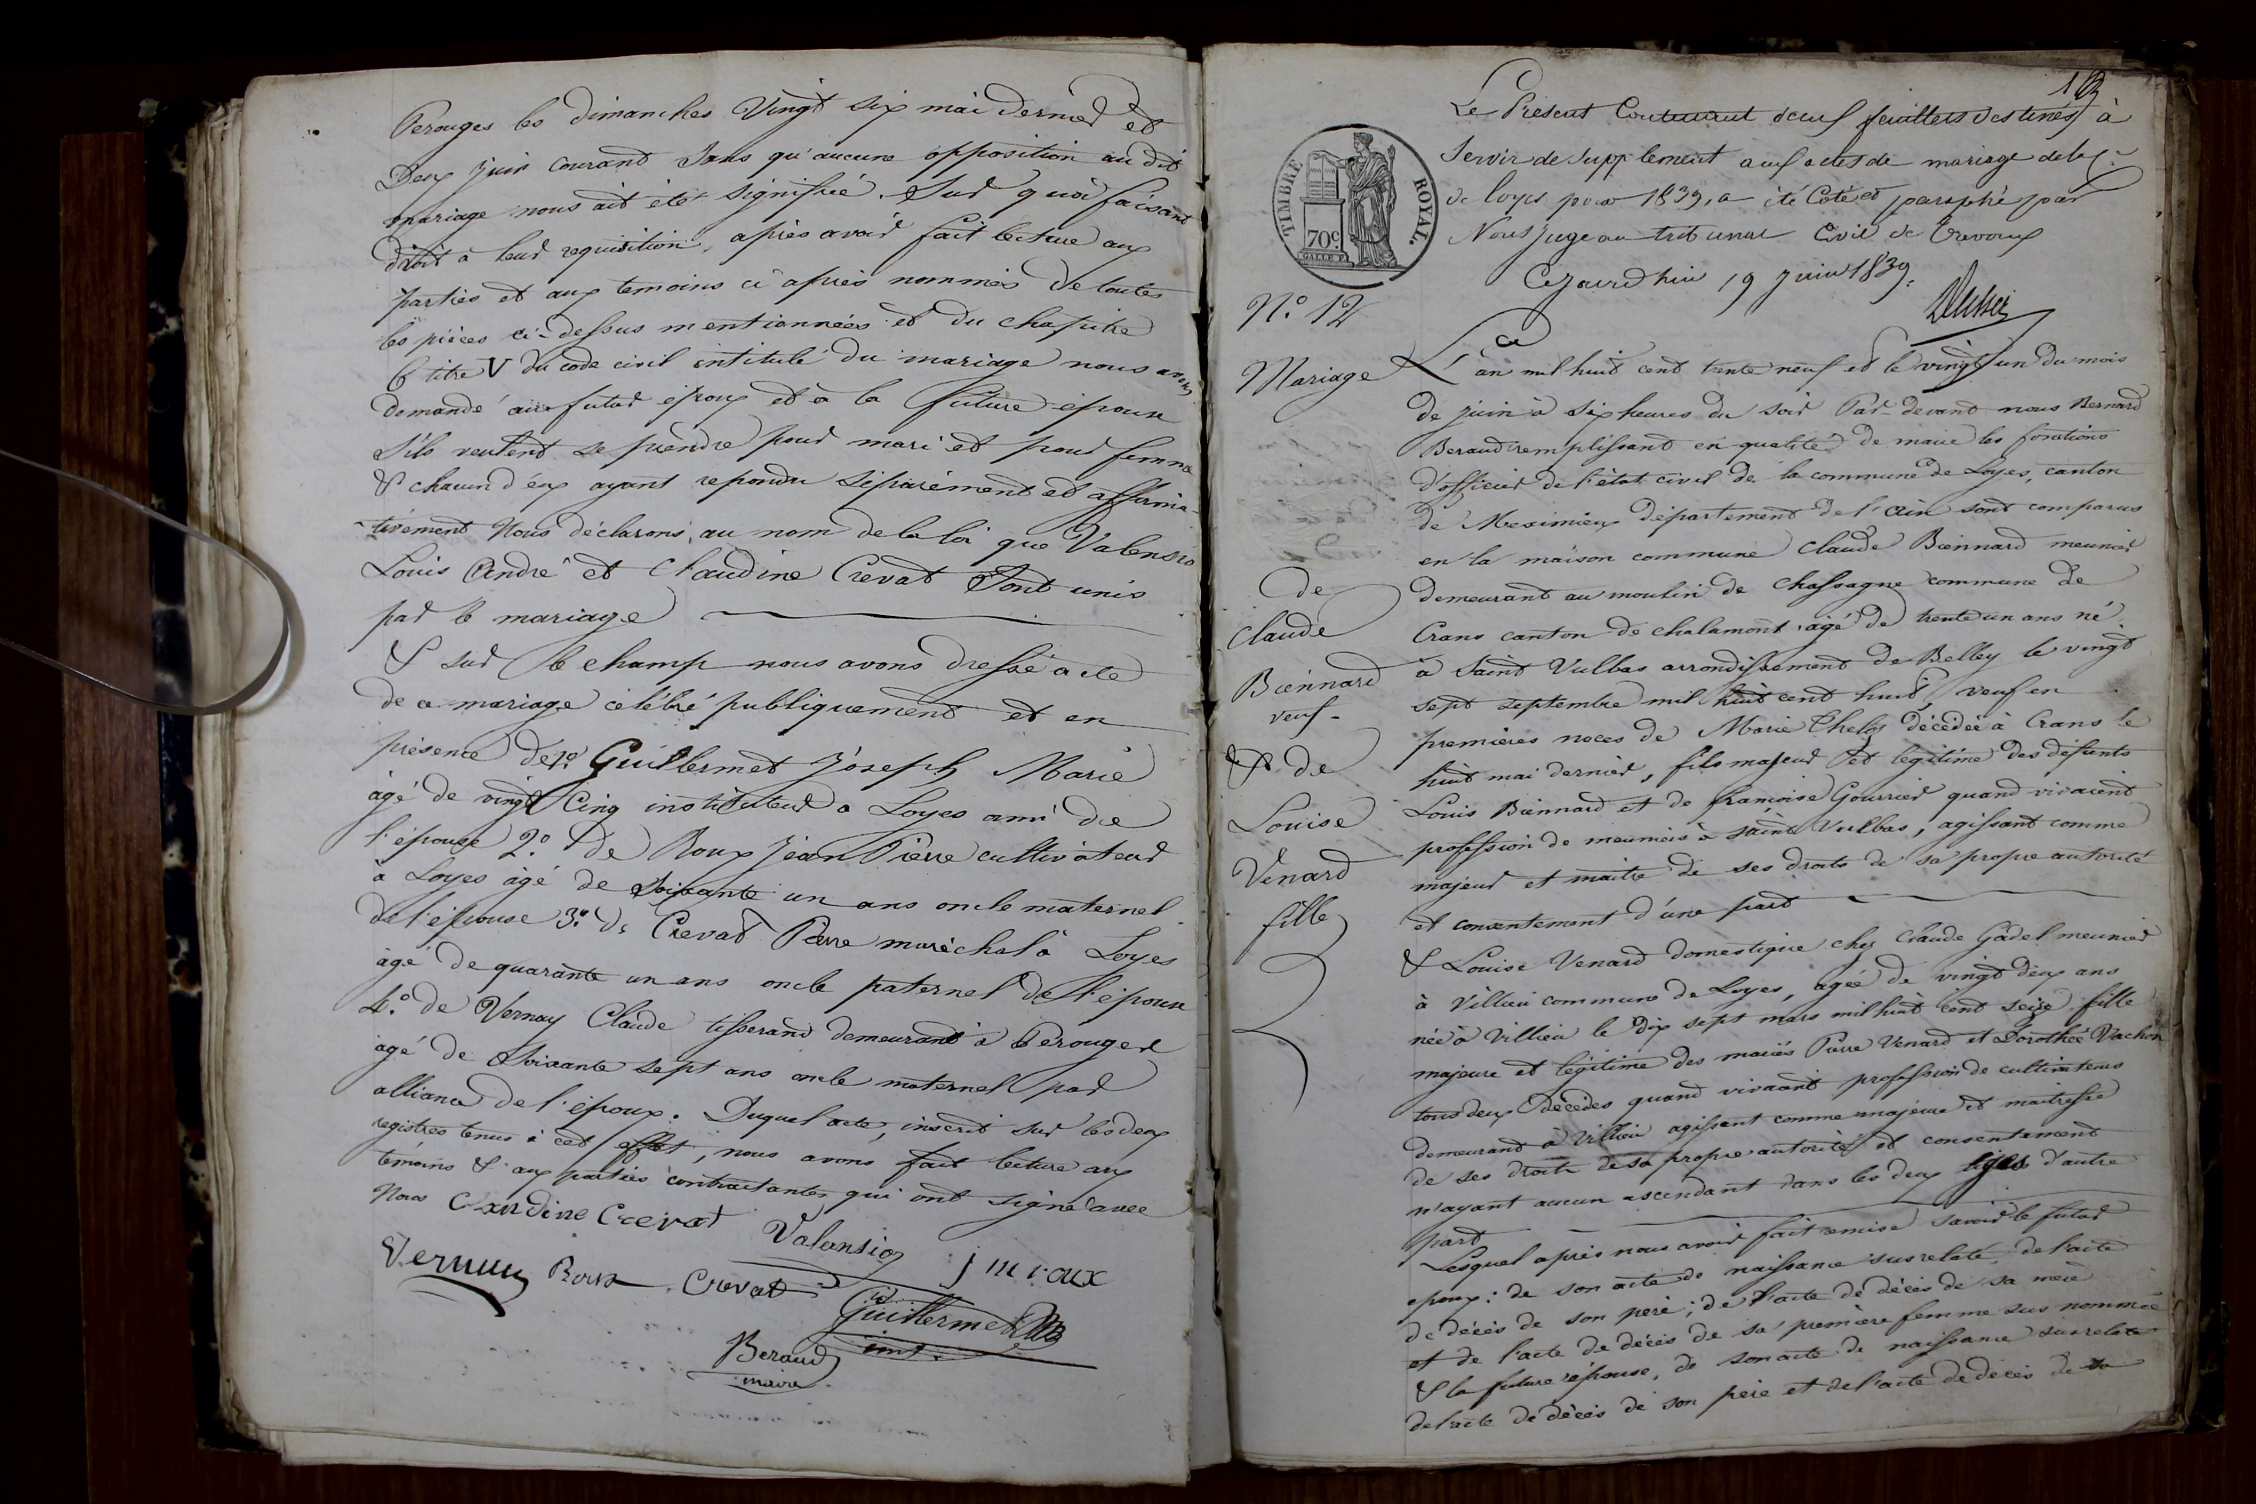 Perouges les dimanches Vingt six mai dernier et
Deux juin courant sans qu'aucune opposition au dit
mariage nous ait été signifiée. Sur quoi faisant
droit à leur requisition, après avoir fait lecture aux
parties et aux temoins ci après nommés de toutes
les pièces ci-dessus mentionnées et du chapitre
6 titre V du code civil intitulé du mariage nous avons
demandé au futur époux et à la future épouse
s'ils veulent se prendre pour mari et pour femme
& chacun d'eux ayant repondu séparément et affirma-
tivement Nous déclarons, au nom de la loi que Valensio
Louis André et Claudine Crevat sont unis
par le mariage
& sur le champ nous avons dressé acte
de ce mariage célébré publiquement et en
présence de 1º Guillermet Joseph Marie
âgé de vingt cinq instituteur a Loyes ami de
l'épouse 2º de Roux Jean Pierre cultivateur
à Loyes âgé de soixante un ans oncle maternel
de l'épouse 3º de Crevat Pierre maréchal à Loyes
âgé de quarante un ans oncle paternel de l'épouse
4º de Vernay Claude tisserand demeurant à Pérouges
âgé de soixante sept ans oncle maternel par
alliance de l'époux. Duquel acte, inscrit sur les deux
registres tenus à cet effet, nous avons fait lecture aux
témoins & aux parties contractantes qui ont signé avec
Nous Claudine Crevat
Valensio
Roux Crevat
Guillermet
inst.
Beraud
maire
Le Présent Contenant deux feuillets destinés à
Servir de supplement aux actes de mariage de la Cne
de loyes pour 1839, a été Coté et paraphé par
Nous Juge au tribunal Civil de Trevoux
Cejourd'hui 19 juin 1839.
TIMBRE ROYAL.
70c.
Nº. 12
Mariage
de
Claude
Biennard
veuf
& de
Louise
Venard
fille
L'an mil huit cent trente neuf et le vingt un du mois
de juin à six heures du soir Par-devant nous Bernard
Beraud remplissant en qualité de maire les fonctions
d'officier de l'état civil de la commune de Loyes, canton
de Meximieux département de l'ain sont comparus
en la maison commune Claude Biennard meunier
demeurant au moulin de Chassagne commune de
Crans canton de chalamont, âgé de trente un ans né
à Saint Vulbas arrondissement de Belley le vingt
sept septembre mil huit cent huit, veuf en
premières noces de Marie décédée à Crans le
huit mai dernier, fils majeur et légitime des défunts
Louis Biennard et de françoise Gourrier quand vivaient
profession de meuniers à Saint Vulbas, agissant comme
majeur et maître de ses droits de sa propre autorité
et consentement d'une part
& Louise Venard domestique chez Claude Gadel meunier
à Villieu commune de Loyes, agée de vingt deux ans
née à Villieu le dix sept mars mil huit cent seize fille
majeure et légitime des mariés Pierre Venard et Dorothée Vachon
tous deux décédés quand vivaient profession de cultivateurs
demeurant à Villieu agissant comme majeure et maitresse
de ses droits de sa propre autorité et consentement
n'ayant aucun ascendant dans les deux lignes d'autre
part
Lesquel après nous avoir fait remise savoir le futur
epoux: de son acte de naissance susrelaté, de l'acte
de décès de son père; de l'acte de décès de sa mère
et de l'acte de décès de sa première femme sus nommée
& la future épouse, de son acte de naissance susrelaté
de l'acte de décès de son père et de l'acte de décès de sa